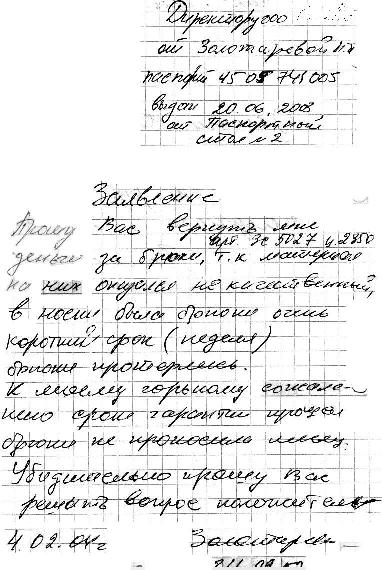 Директору ооо
от Золотаревой
паспорт 45 05 745005
выдан 20.06.2003
от Паспортный
стол N 2
Заявление
Прошу Вас вернуть мне
арт. Зс 5027 ц. 2850
деньги за брюки, т.к материал
на них оказался не качественный,
в носке была брюки очень
короткий срок (неделя)
брюки протерлись.
К моему горькому сожале-
нию сроки гарантии прошли
брюки не проносила месяц.
Убедительно прошу Вас
решить вопрос положитель
4.02.04г Золотарев